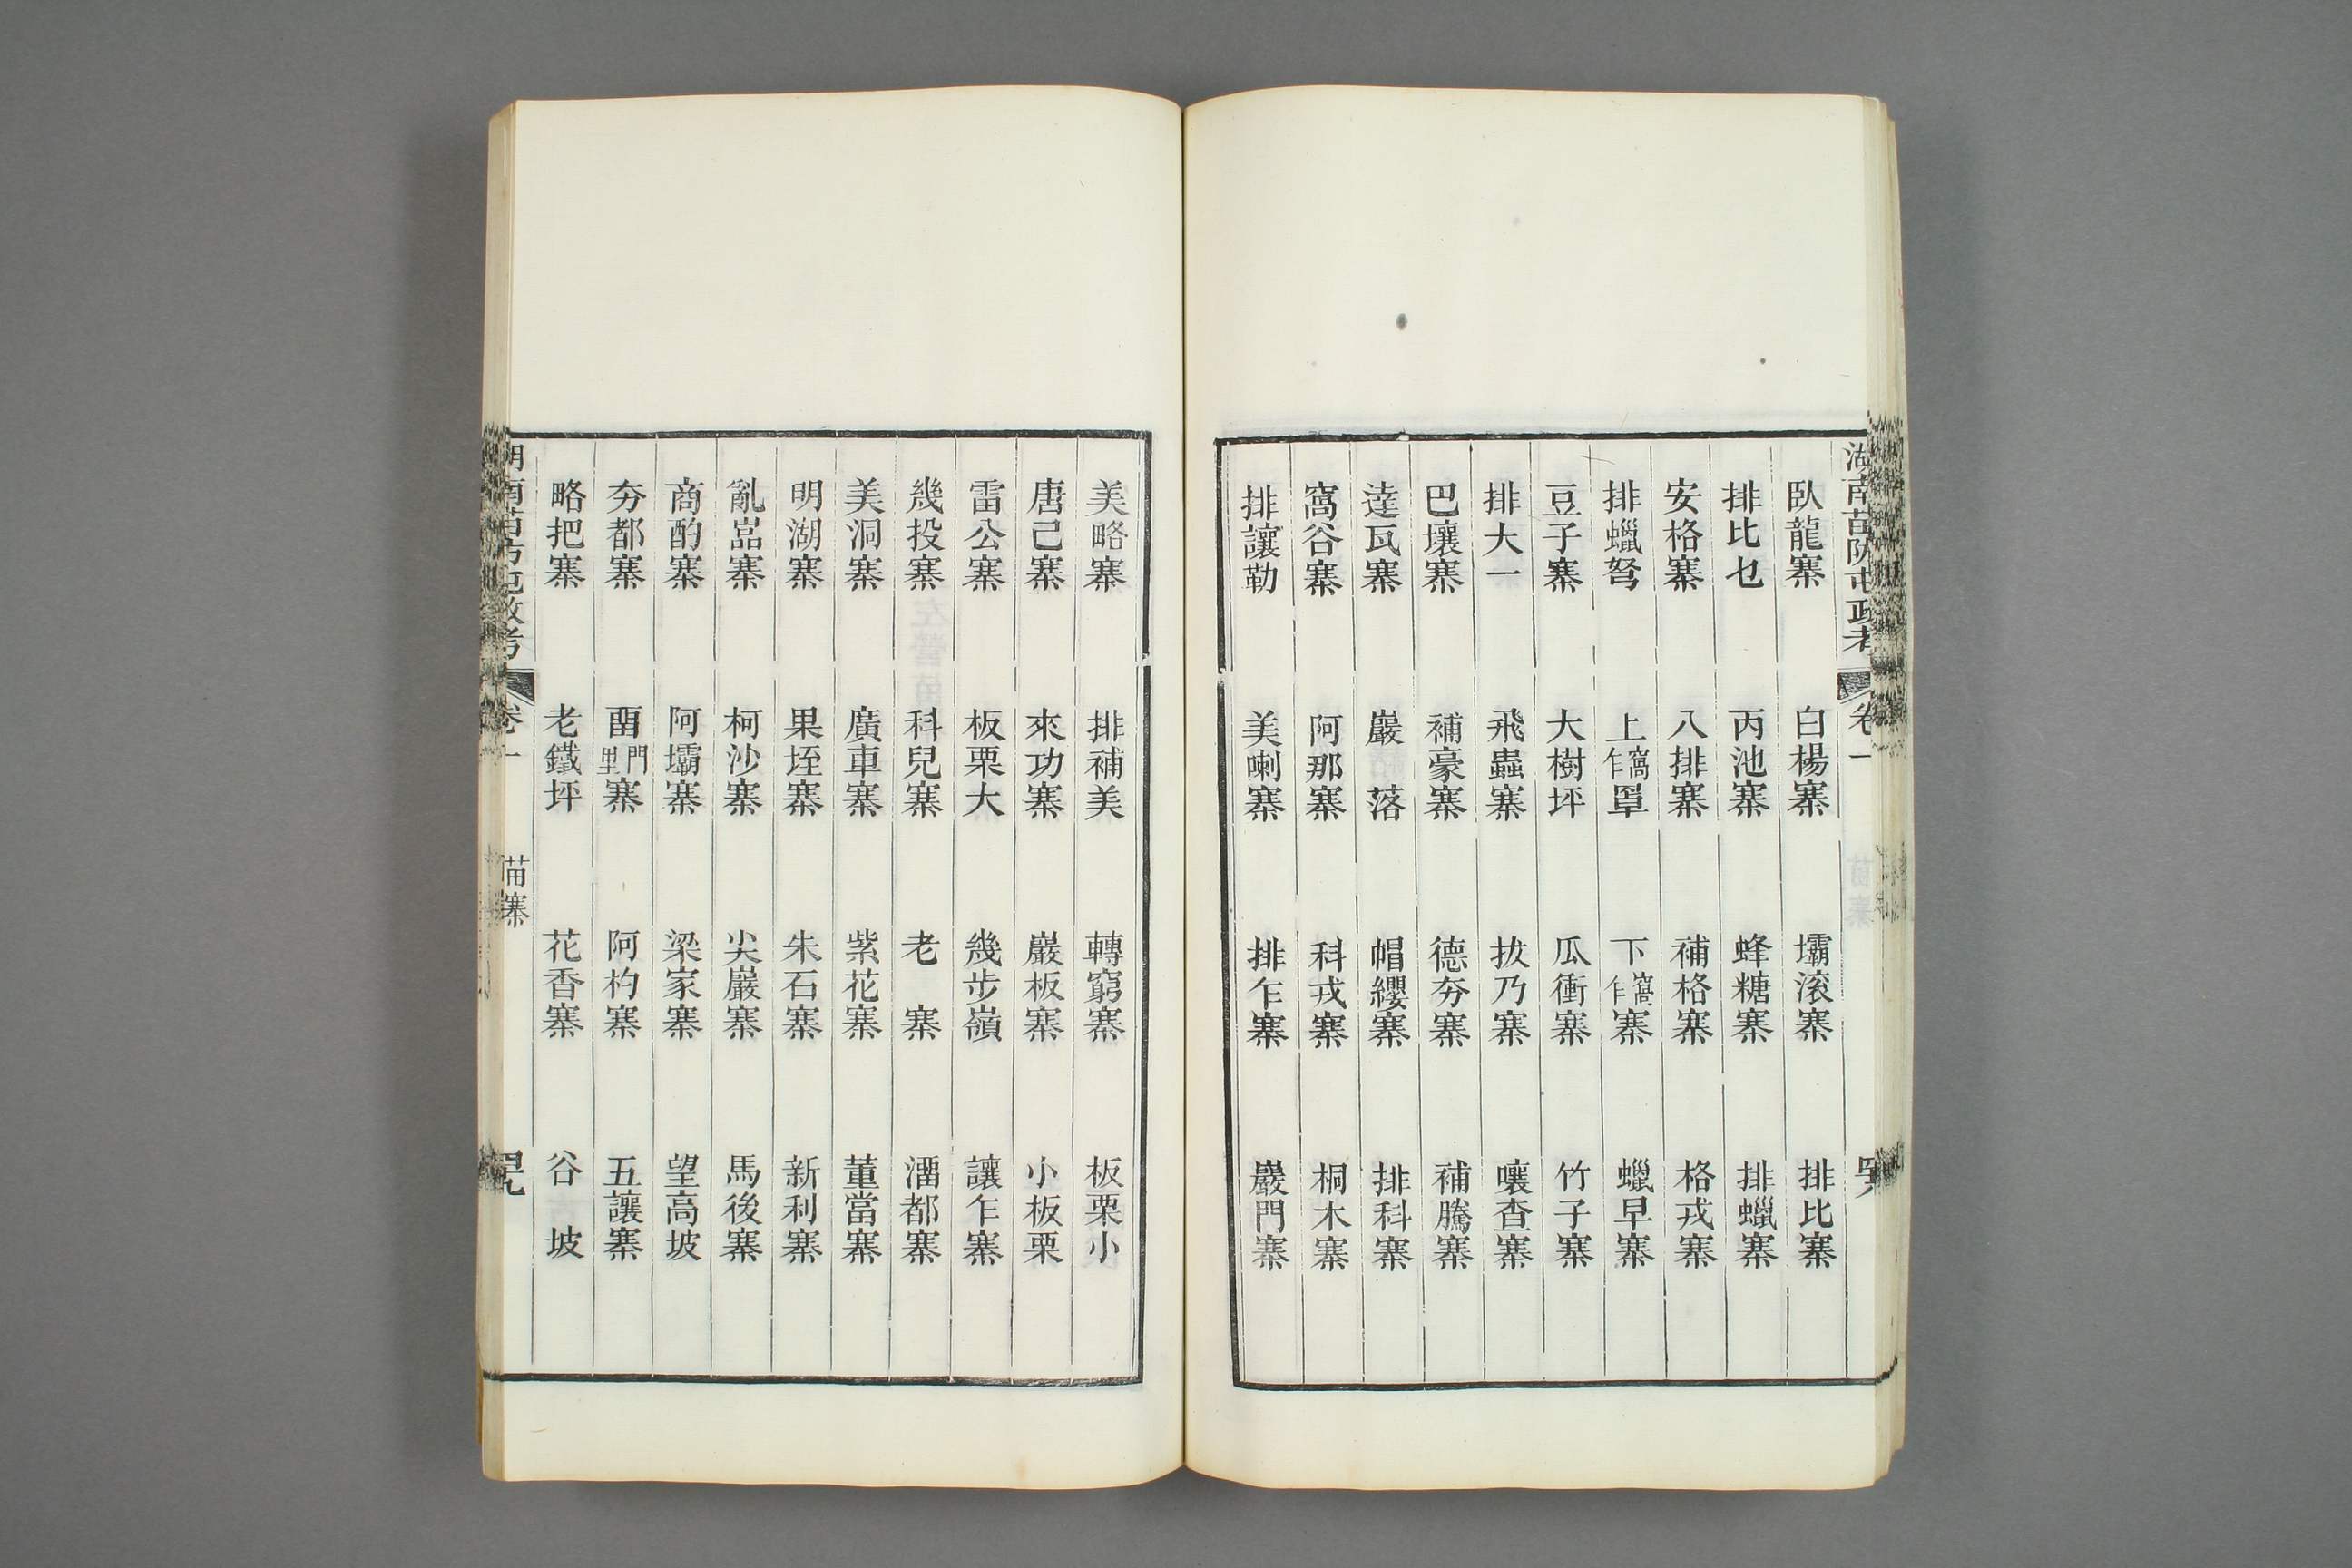 湖南苗防屯政考 卷一
臥龍寨 白楊寨 壩滚寨 排比寨
排比乜 丙池寨 蜂糖寨 排蠟寨
安格寨 八排寨 補格寨 格戎寨
排蠟弩 上窩乍單 下窩乍寨 蠟早寨
豆子寨 大樹坪 瓜衝寨 竹子寨
排大一 飛蟲寨 拔乃寨 嚷查寨
巴壤寨 補豪寨 德夯寨 補騰寨
達瓦寨 巖落 帽纓寨 排科寨
窩谷寨 阿那寨 科戎寨 桐木寨
排讓勒 美喇寨 排乍寨 巖門寨
美略寨 排補美 轉窮寨 板栗小
唐己寨 來功寨 巖板寨 小板栗
雷公寨 板栗大 幾步嶺 讓乍寨
幾投寨 科兒寨 老寨 溜都寨
美洞寨 廣車寨 紫花寨 董當寨
明湖寨 果垤寨 朱石寨 新利寨
亂嵓寨 柯沙寨 尖巖寨 馬後寨
商酌寨 阿壩寨 梁家寨 望高坡
夯都寨 門里寨 阿杓寨 五讓寨
略把寨 老鐵坪 花香寨 谷坡
湖南苗防屯政考 卷一 苗寨